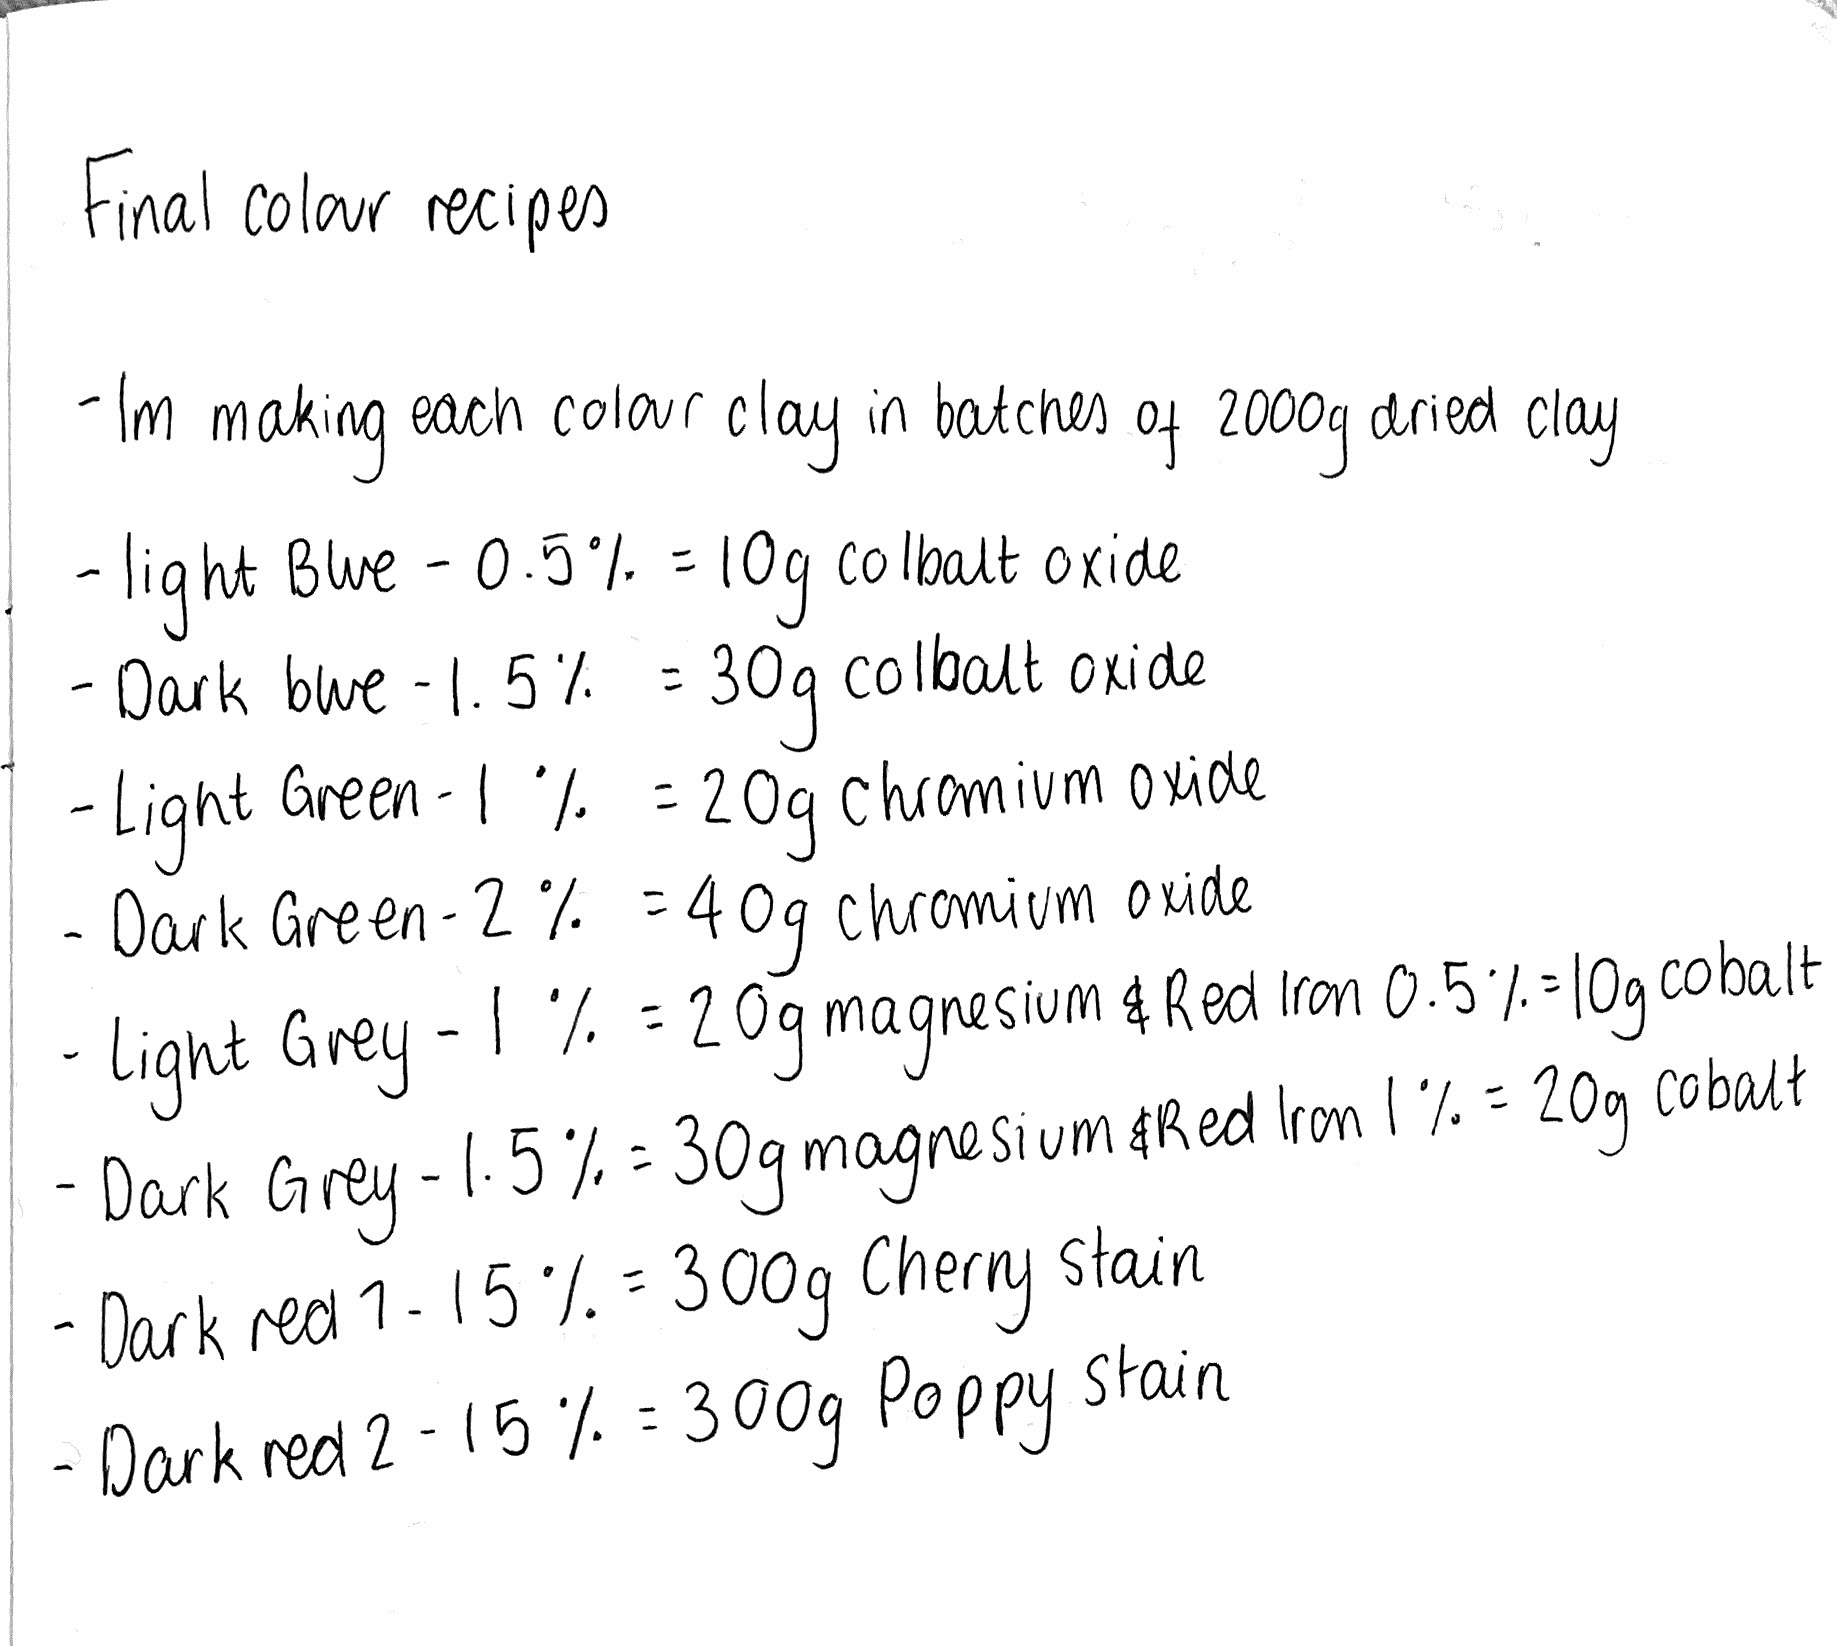 Final colour recipes
- Im making each colour clay in batches of 2000g dried clay
- light Blue - 0.5% = 10g colbalt oxide
- Dark blue - 1.5% = 30g colbalt oxide
- Light Green - 1% = 20g chromium oxide
- Dark Green - 2% = 40g chromium oxide
- Light Grey - 1% = 20g magnesium & Red Iron 0.5% = 10g cobalt
- Dark Grey - 1.5% = 30g magnesium & Red Iron 1% = 20g cobalt
- Dark red 1 - 15% = 300g Cherry stain
- Dark red 2 - 15% = 300g Poppy stain